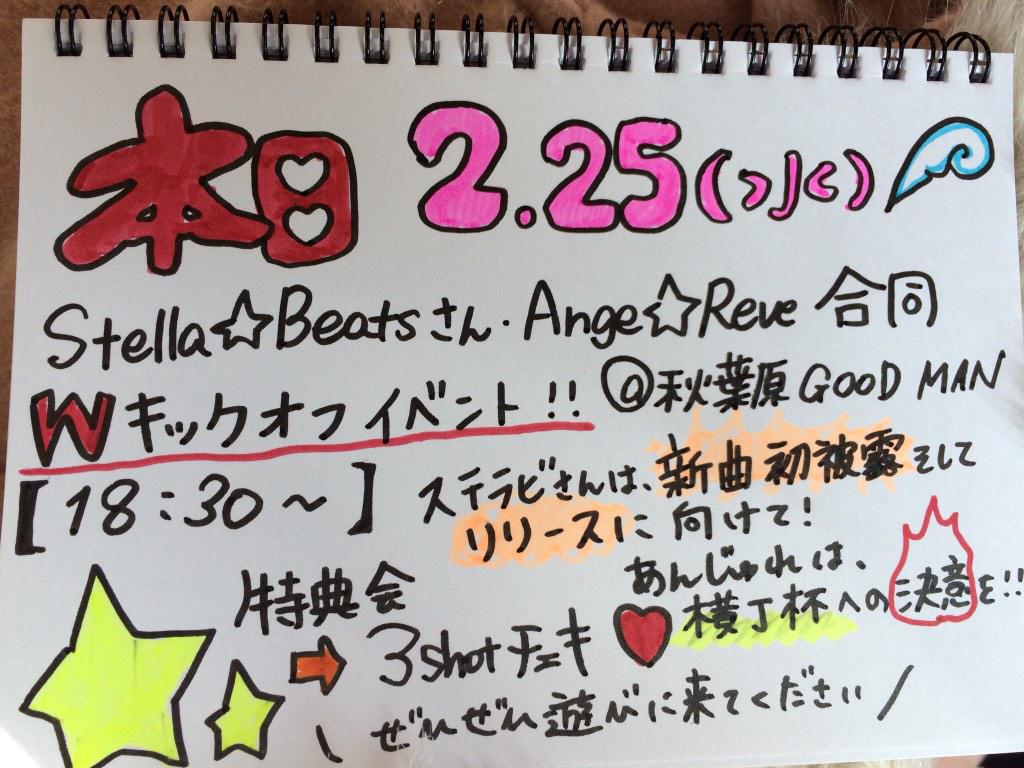 本日 2.25(水)
Stella☆Beatsさん・Ange☆Reve 合同
Wキックオフイベント!! @秋葉原 GOOD MAN
【18:30～】
ステラビさんは、新曲初披露そして
リリースに向けて!
あんじゅれは、
横丁杯への決意を!!
特典会
➡ 3shotチェキ
\ ぜひぜひ遊びに来てください /